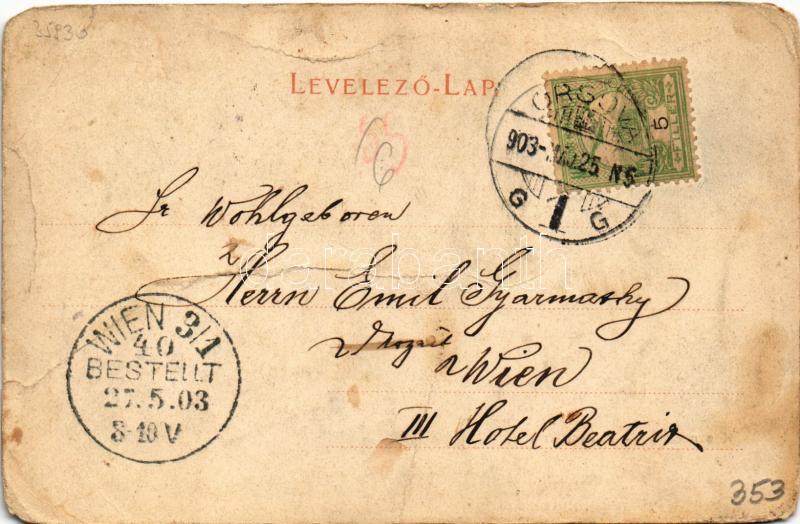 35936
LEVELEZŐ-LAP
6
ORSOVA
903 MÁJ 25 N5
G 1 G
5
FILLÉR
Sr Wohlgeboren
Herrn Emil Gyarmathy
Wien
III Hotel Beatrix
WIEN 3/1
40
BESTELLT
27.5.03
8-10 V
darabanth
353